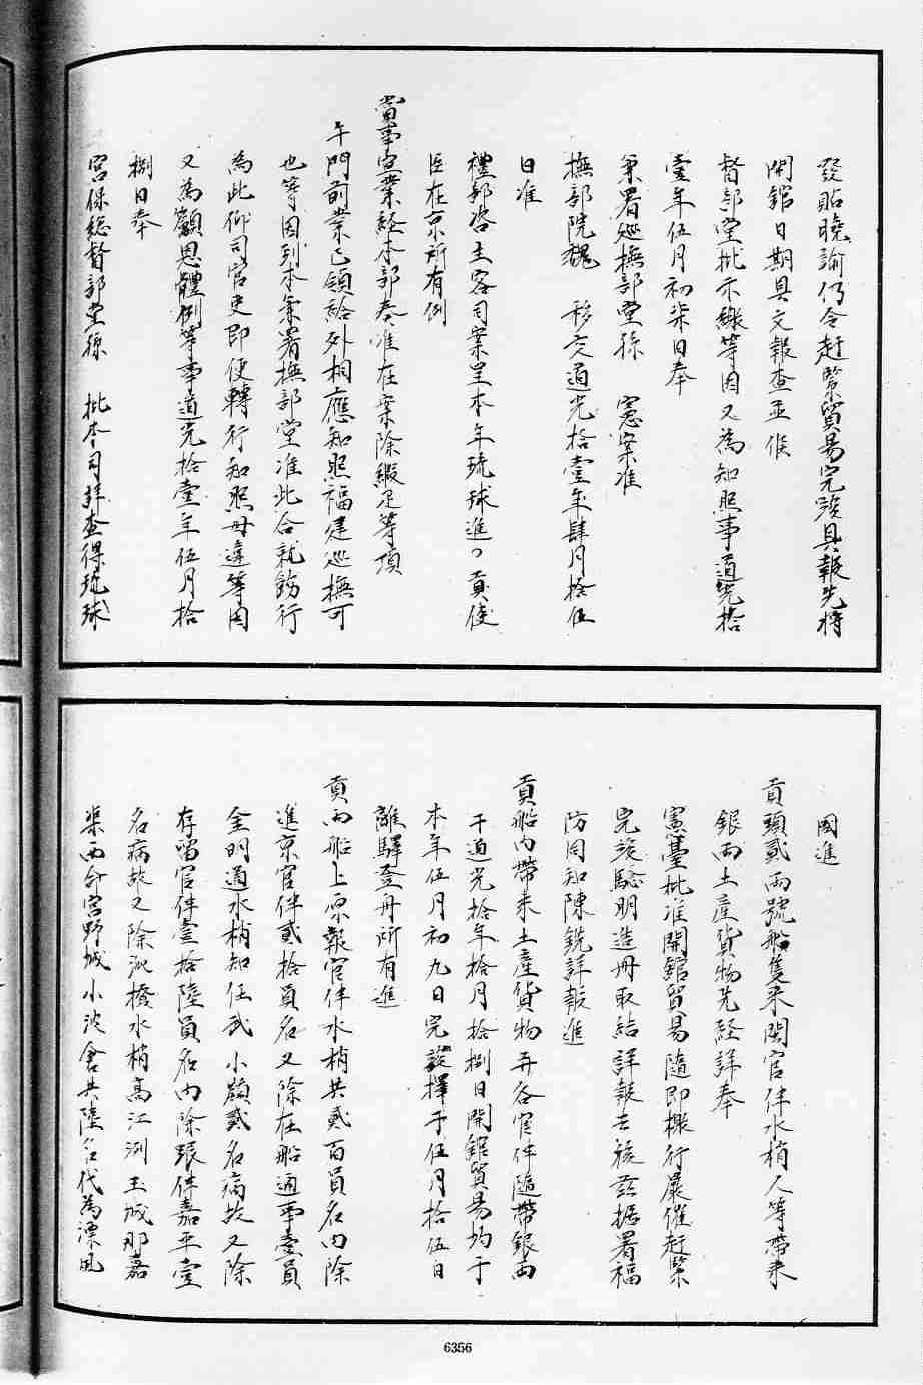 發貼曉諭仍令赶緊貿易完竣具報先將
開館日期具文報查並候
督部堂批示繳等因又為知照事道光拾
壹年伍月初柒日奉
兼署巡撫部堂孫　憲案准
撫部院魏　移交道光拾壹年肆月拾伍
日准
禮部咨主客司案呈本年琉球進貢使
臣在京所有例
賞事宜業經本部奏准在案除緞疋等項
午門前業已領給外相應知照福建巡撫可
也等因到本兼署撫部堂准此合就飭行
為此仰司官吏即便轉行知照毋違等因
又為籲恩體例等事道光拾壹年伍月拾
捌日奉
宮保總督部堂孫　批本司詳查得琉球
國進
貢頭貳兩號船隻來閩官伴水梢人等帶來
銀兩土產貨物先經詳奉
憲臺批准開館貿易隨即檄行嚴催赶緊
完竣驗明造冊取結詳報去後茲據署福
防同知陳銑詳報進
貢船內帶來土產貨物并各官伴隨帶銀兩
于道光拾年拾月拾捌日開館貿易均于
本年伍月初九日完竣擇于伍月拾伍日
離驛登舟所有進
貢兩船上原報官伴水梢共貳百員名內除
進京官伴貳拾員名又除在船通事壹員
金明通水梢知任武小嶺貳名病故又除
存留官伴壹拾陸員名內除跟伴嘉平壹
名病故又除派撥水梢高江洲玉城那嘉
渠西合宮野城小波倉共陸名代為漂風
6356